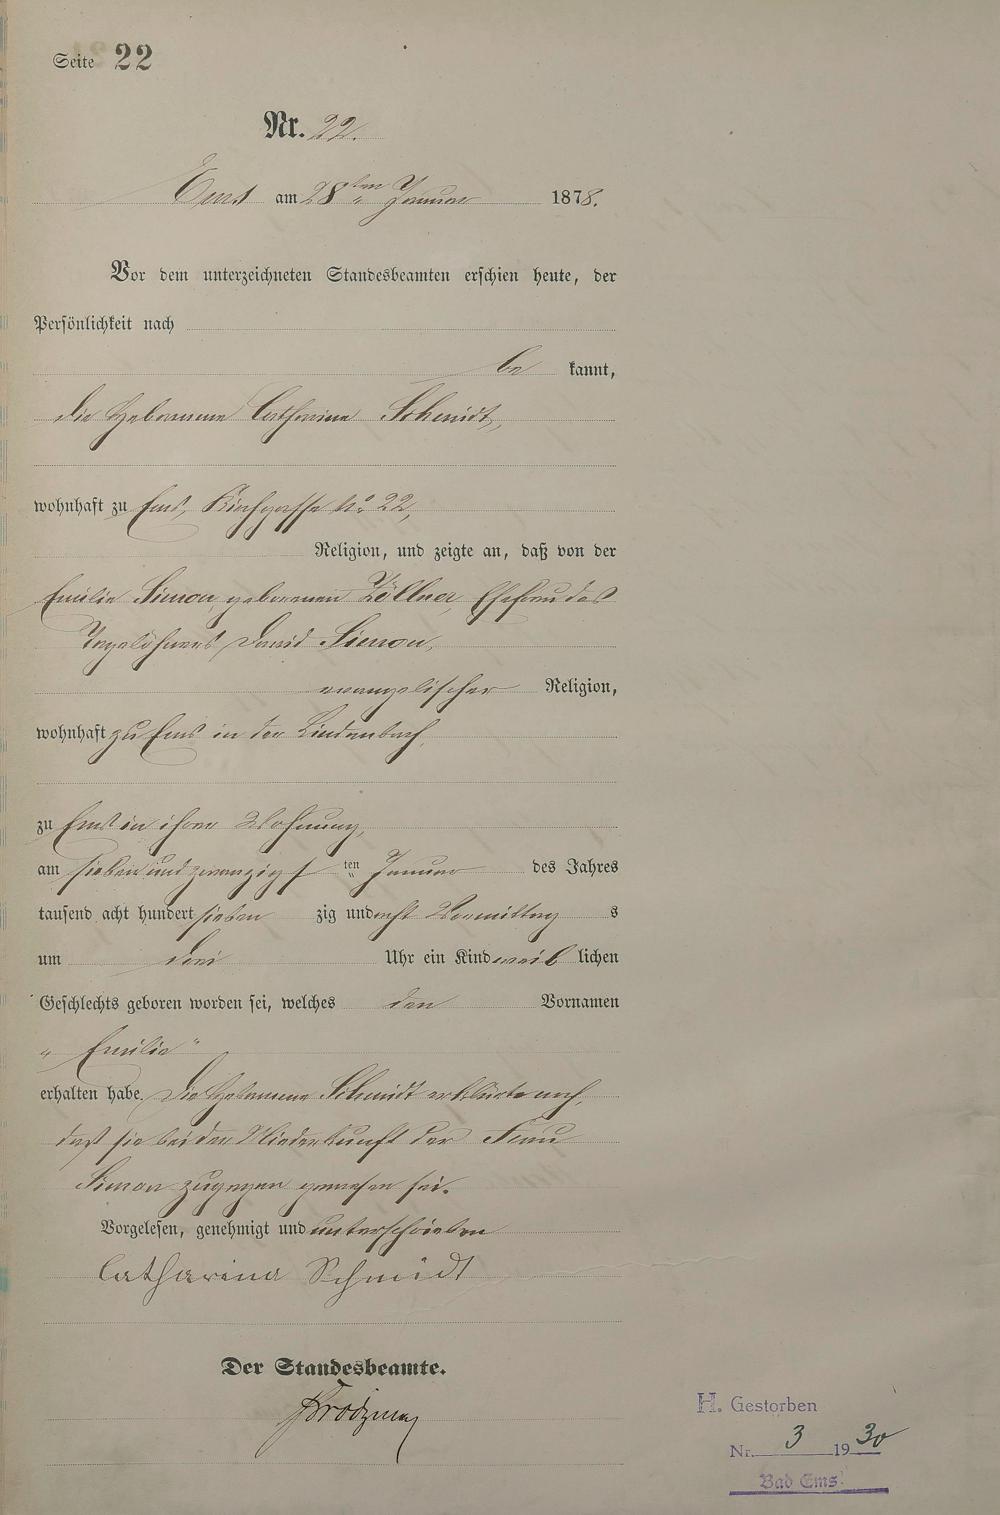 Seite 22
Nr. 22.
Ems am 28ten Januar 1878.
Vor dem unterzeichneten Standesbeamten erschien heute, der
Persönlichkeit nach
be kannt,
die Hebamme Catharina Schmidt,
wohnhaft zu Ems, Kirchgasse No 22,
Religion, und zeigte an, daß von der
Emilie Simon, gebornen Zöllner, Ehefrau des
Tagelöhners David Simon,
evangelischer Religion,
wohnhaft zu Ems in der Lindenbach,
zu Ems in ihrer Wohnung,
am sieben und zwanzigsten Januar des Jahres
tausend acht hundert sieben zig und acht Vormittag s
um drei Uhr ein Kind weib lichen
Geschlechts geboren worden sei, welches den Vornamen
„Emilie“
erhalten habe. Die Hebamme Schmidt erklärte noch,
daß sie bei der Niederkunft der Frau
Simon zugegen gewesen sei.
Vorgelesen, genehmigt und unterschrieben
Catharina Schmidt
Der Standesbeamte.
H. Gestorben
Nr. 3 1930
Bad Ems